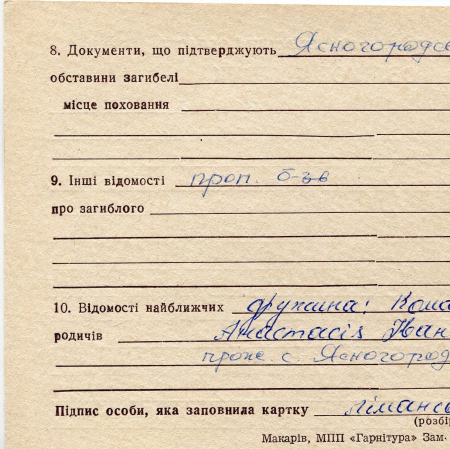 8. Документи, що підтверджують Ясногородсь
обставини загибелі
місце поховання
9. Інші відомості проп. б-зв
про загиблого
10. Відомості найближчих дружина: Кома
родичів Анастасія Іван
прож с. Ясногород
Підпис особи, яка заповнила картку Лимансь
(розбі
Макарів, МПП «Гарнітура» Зам.